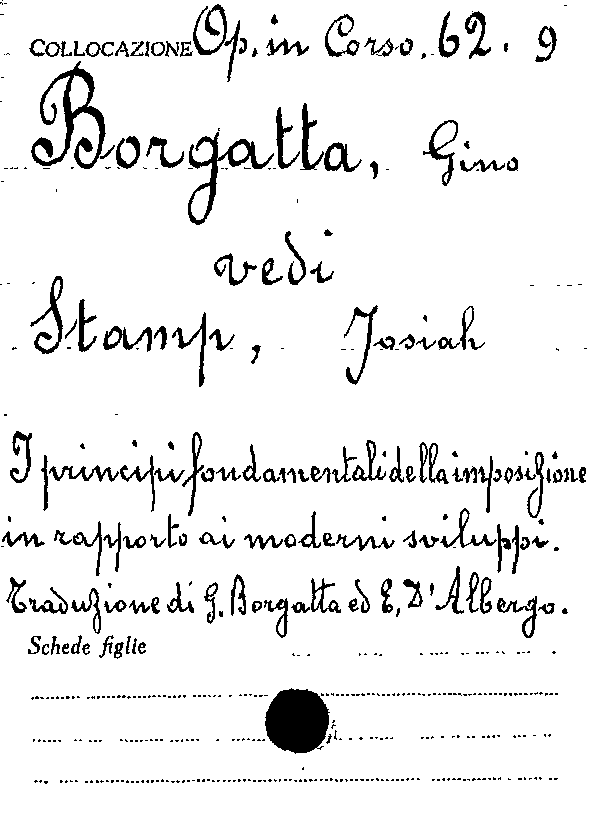 COLLOCAZIONE Op. in Corso. 62. 9
Borgatta, Gino
vedi
Stamp, Josiah
I principi fondamentali della imposizione
in rapporto ai moderni sviluppi.
Traduzione di G. Borgatta ed E. D'Albergo.
Schede figlie